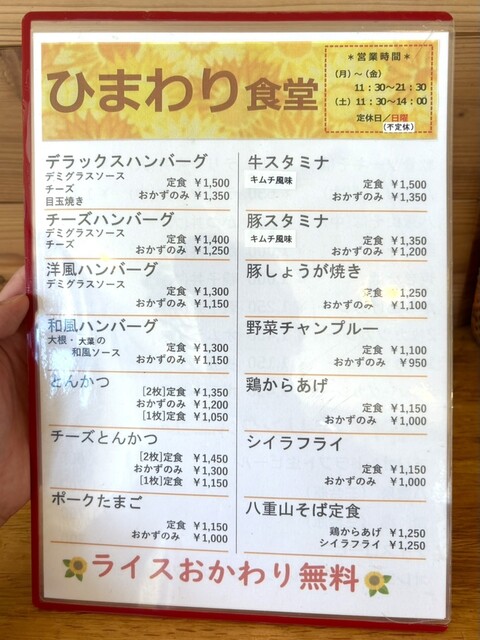 ひまわり食堂
＊営業時間＊
（月）～（金）
11：30～21：30
（土）11：30～14：00
定休日／日曜
（不定休）
デラックスハンバーグ
デミグラスソース
チーズ
目玉焼き
定食 ￥1,500
おかずのみ ￥1,350
チーズハンバーグ
デミグラスソース
チーズ
定食 ￥1,400
おかずのみ ￥1,250
洋風ハンバーグ
デミグラスソース
定食 ￥1,300
おかずのみ ￥1,150
和風ハンバーグ
大根・大葉の
和風ソース
定食 ￥1,300
おかずのみ ￥1,150
とんかつ
[2枚]定食 ￥1,350
おかずのみ ￥1,200
[1枚]定食 ￥1,050
チーズとんかつ
[2枚]定食 ￥1,450
おかずのみ ￥1,300
[1枚]定食 ￥1,150
ポークたまご
定食 ￥1,150
おかずのみ ￥1,000
牛スタミナ
キムチ風味
定食 ￥1,500
おかずのみ ￥1,350
豚スタミナ
キムチ風味
定食 ￥1,350
おかずのみ ￥1,200
豚しょうが焼き
定食 ￥1,250
おかずのみ ￥1,100
野菜チャンプルー
定食 ￥1,100
おかずのみ ￥950
鶏からあげ
定食 ￥1,150
おかずのみ ￥1,000
シイラフライ
定食 ￥1,150
おかずのみ ￥1,000
八重山そば定食
鶏からあげ ￥1,250
シイラフライ ￥1,250
ライスおかわり無料